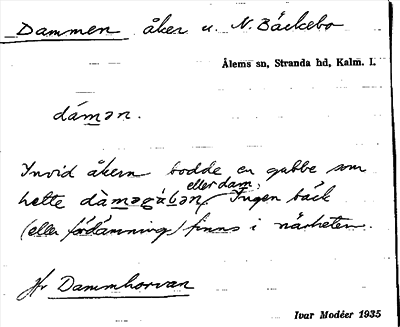 Dammen åker u. N. Bäckebo
Ålems sn, Stranda hd, Kalm. l.
dámən.
Invid åkern bodde en gubbe som
eller dam.
hette dàməgúbən. Ingen bäck
(eller fördämning) finns i närheten.
Jfr Dammhorvan
Ivar Modéer 1935